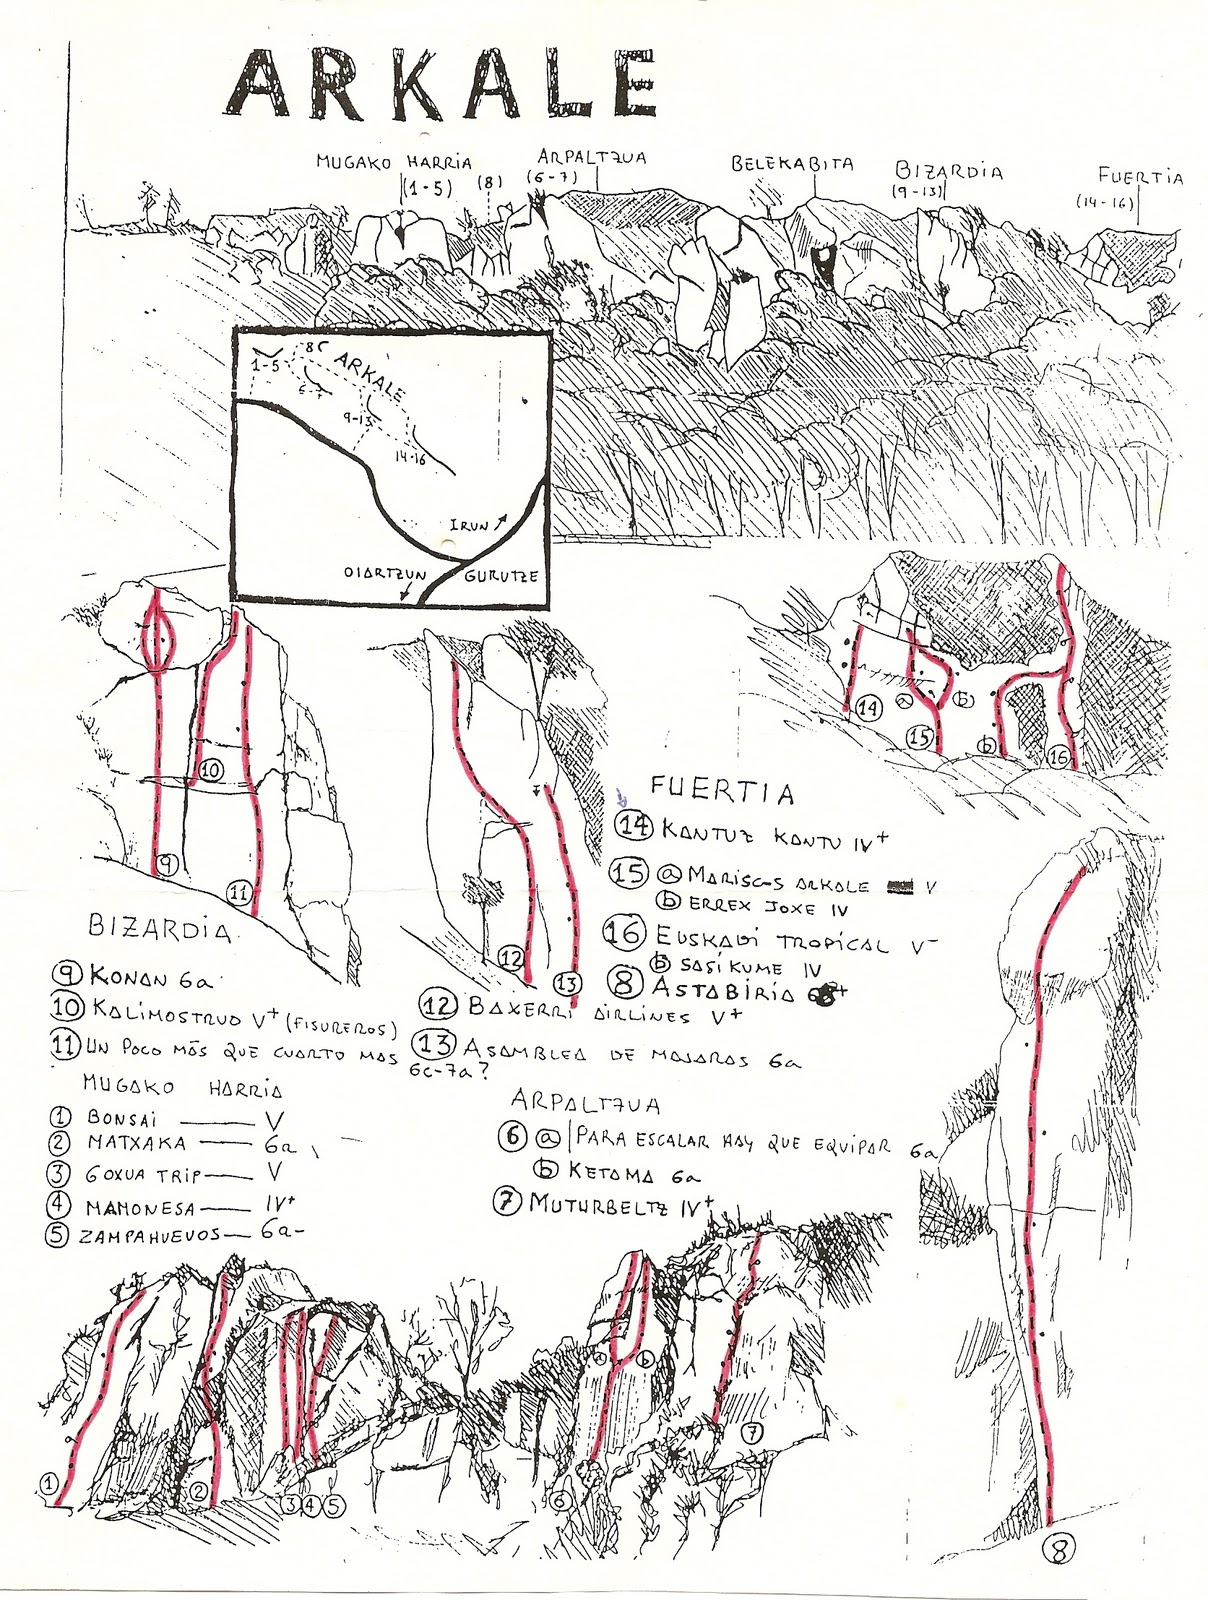 ARKALE
MUGAKO HARRIA
(1-5)
(8)
ARPALTZUA
(6-7)
BELEKABITA
BIZARDIA
(9-13)
FUERTIA
(14-16)
1-5
8
ARKALE
6-7
9-13
14-16
IRUN
OIARTZUN
GURUTZE
9
10
11
12
13
14
a
b
15
b
16
BIZARDIA
9 KONAN 6a
10 KALIMOSTRUO V+ (FISUREROS)
11 UN POCO MÁS QUE CUARTO MAS
6c-7a?
12 BAXERRI AIRLINES V+
13 ASAMBLEA DE MAJARAS 6a
FUERTIA
14 KANTUZ KANTU IV+
15 a MARISCOS ARKALE V
b ERREX JOXE IV
16 EUSKADI TROPICAL V-
b SASIKUME IV
8 ASTABIRIA
MUGAKO HARRIA
1 BONSAI V
2 MATXAKA 6a
3 GOXUA TRIP V
4 MAMONESA IV+
5 ZAMPAHUEVOS 6a-
ARPALTZUA
6 a PARA ESCALAR HAY QUE EQUIPAR 6a
b KETAMA 6a
7 MUTURBELTZ IV+
1
2
3 4 5
6
a
b
7
8